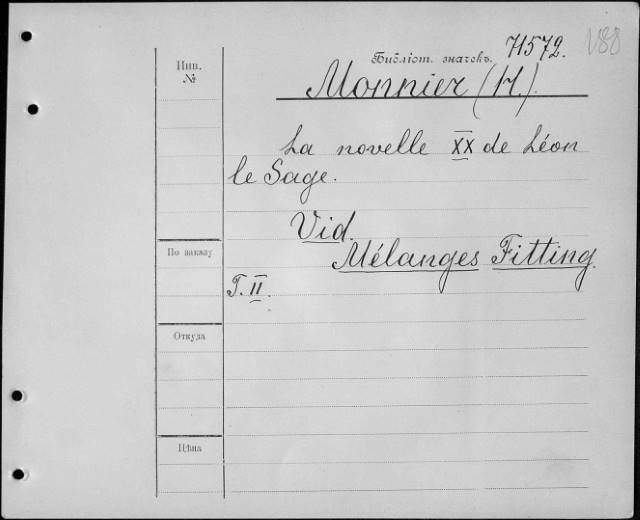 Инв.
№
Библіот. значекъ. 71572.
188
Monnier (H.).
La novelle XX de Léon
le Sage.
Vid.
Mélanges Fitting.
T. II.
По заказу
Откуда
Цѣна